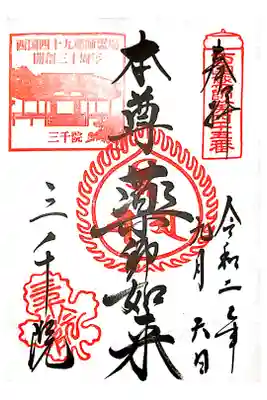 奉拝
令和二年
九月 六日
本尊 薬師如来
三千院
西国四十九薬師霊場
開創三十周年
三千院